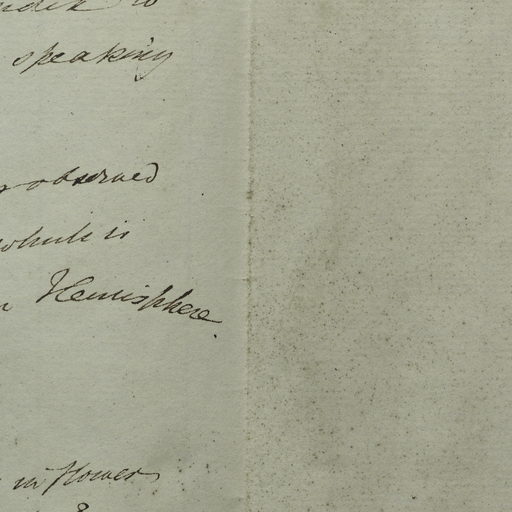 speaking
observed
which is
Hemisphere.
in flower